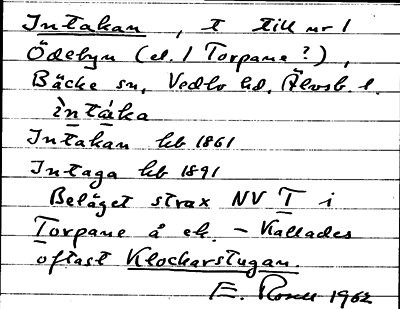 Intakan, t till nr 1
Ödebyn (el. / Torpane?),
Bäcke sn, Vedbo hd, Älvsb. l.
ìntáka
Intakan hb 1861
Intaga hb 1891
Beläget strax NV T i
Torpane å ek. – Kallades
oftast Klockarstugan.
E. Rosell 1962